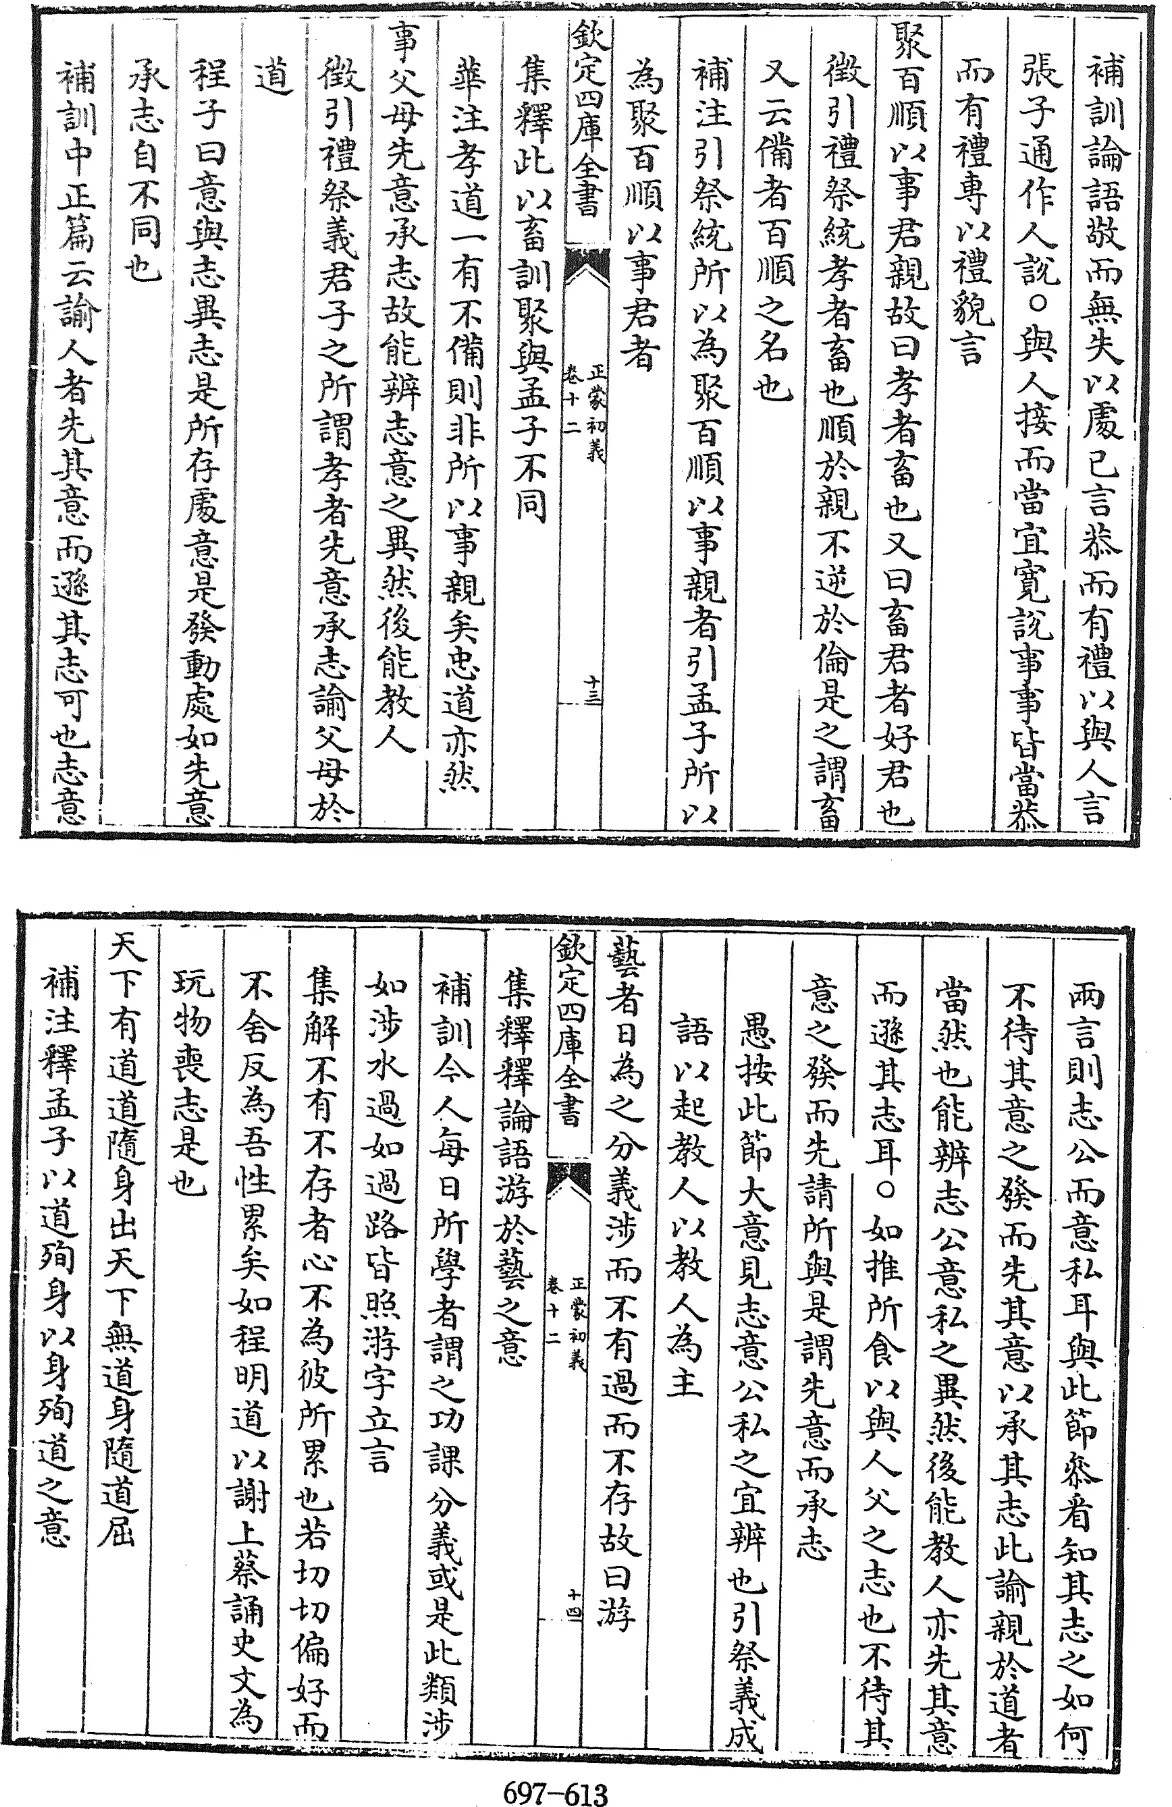 補訓論語敬而無失以處已言恭而有禮以與人言
張子通作人說○與人接而當宜寛說事事皆當恭
而有禮專以禮貌言
聚百順以事君親故曰孝者畜也又曰畜君者好君也
徵引禮祭統孝者畜也順於親不逆於倫是之謂畜
又云備者百順之名也
補注引祭統所以為聚百順以事親者引孟子所以
為聚百順以事君者
欽定四庫全書
正蒙初義
卷十二
十三
集釋此以畜訓聚與孟子不同
華注孝道一有不備則非所以事親矣忠道亦然
事父母先意承志故能辨志意之異然後能教人
徵引禮祭義君子之所謂孝者先意承志諭父母於
道
程子曰意與志異志是所存處意是發動處如先意
承志自不同也
補訓中正篇云諭人者先其意而遜其志可也志意
兩言則志公而意私耳與此節叅看知其志之如何
不待其意之發而先其意以承其志此諭親於道者
當然也能辨志公意私之異然後能教人亦先其意
而遜其志耳○如推所食以與人父之志也不待其
意之發而先請所與是謂先意而承志
愚按此節大意見志意公私之宜辨也引祭義成
語以起教人以教人為主
藝者日為之分義涉而不有過而不存故曰游
欽定四庫全書
正蒙初義
卷十二
十四
集釋釋論語游於藝之意
補訓今人每日所學者謂之功課分義或是此類涉
如涉水過如過路皆照游字立言
集解不有不存者心不為彼所累也若切切偏好而
不舍反為吾性累矣如程明道以謝上蔡誦史文為
玩物喪志是也
天下有道道隨身出天下無道身隨道屈
補注釋孟子以道殉身以身殉道之意
697-613